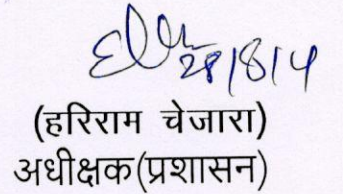 28/8/14
(हरिराम चेजारा)
अधीक्षक(प्रशासन)